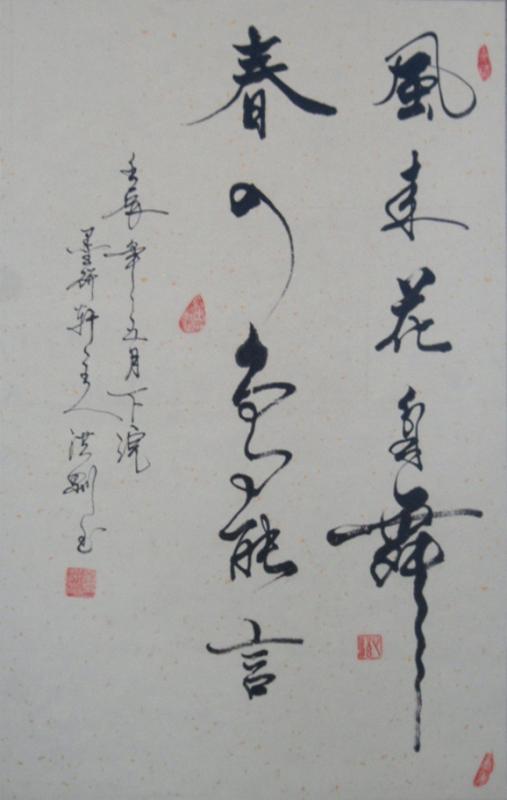 風來花自舞
春入鳥能言
壬辰年五月下浣
墨軒主人洪書